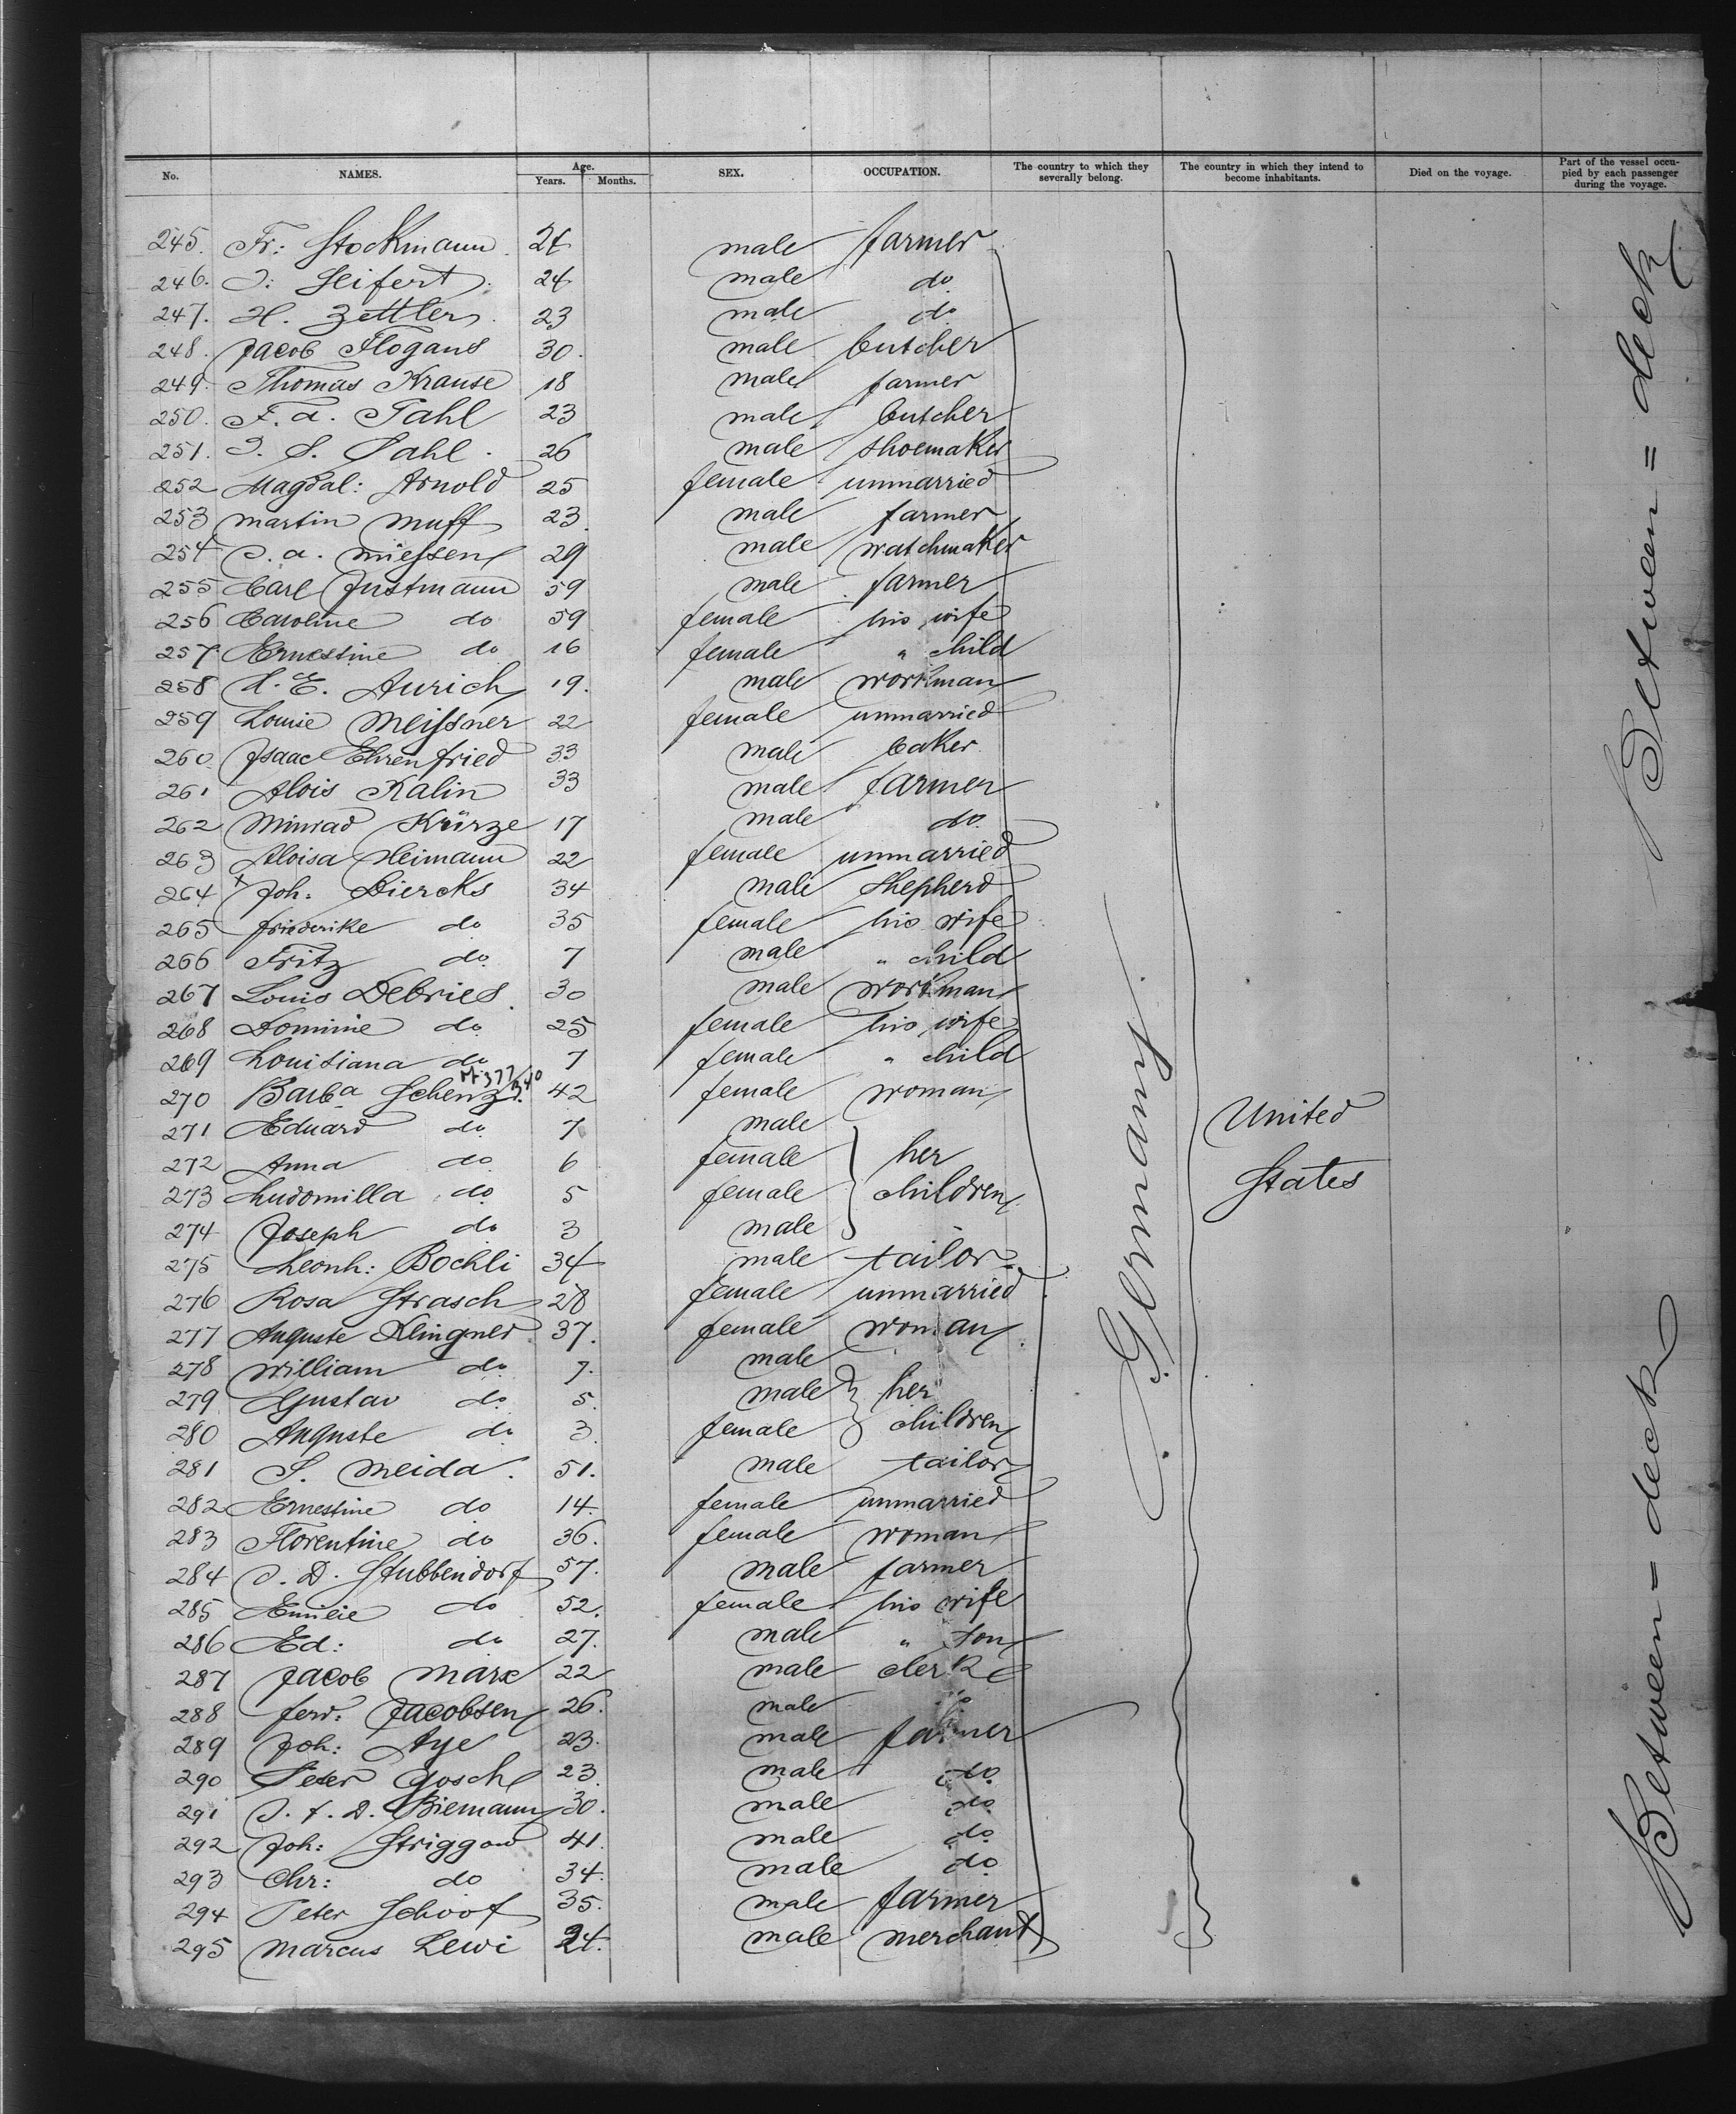 No. NAMES. Age. Years. Months. SEX. OCCUPATION. The country to which they severally belong. The country in which they intend to become inhabitants. Died on the voyage. Part of the vessel occupied by each passenger during the voyage.
245. Fr: Stockmann 24 male farmer
246. J: Seifert 24 male do
247. H. Zettler 23 male do
248. Jacob Flogans 30. male butcher
249. Thomas Krause 18 male farmer
250. F. A. Pahl 23 male butcher
251. J. S. Pahl 26 male shoemaker
252 Magdal: Arnold 25 female unmarried
253 Martin Muff 23. male farmer
254 J. A. Niessen 29 male watchmaker
255 Carl Justmann 59 male farmer
256 Caroline do 59 female his wife
257 Ernestine do 16 female " child
258 H. E. Aurich 19. male workman
259 Louise Meissner 22 female unmarried
260 Isaac Ehrenfried 33 male baker
261 Alois Kalin 33 male farmer
262 Minrad Kürze 17 male do
263 Aloisa Heimann 22 female unmarried
264 x Joh: Diercks 34 male shepherd
265 Friederike do 35 female his wife
266 Fritz do 7 male " child
267 Louis Debries 30 male workman
268 Dominie do 25 female his wife
269 Louisiana do 7 female " child
270 Barba Schenz 42 female woman
271 Eduard do 7 male
272 Anna do 6 female her
273 Ludomilla do 5 female children
274 Joseph do 3 male
275 Leonh: Bochli 34 male tailor
276 Rosa Strasch 28 female unmarried
277 Auguste Klingner 37. female woman
278 William do 7. male
279 Gustav do 5. male her
280 Auguste do 3. female children
281 S. Meida. 51. male tailor
282 Ernestine do 14. female unmarried
283 Florentine do 36. female woman
284 J. D. Stubbendorf 57. male farmer
285 Emilie do 52. female his wife
286 Ed: do 27. male " son
287 Jacob Marx 22 male clerk
288 Ferd: Jacobsen 26. male do
289 Joh: Aye 23. male farmer
290 Peter Gosch 23. male do
291 J. F. D. Biemann 30. male do
292 Joh: Striggow 41. male do
293 Chr: do 34. male do
294 Peter Schoof 35. male farmer
295 Marcus Lewi 24. male merchant
Germany
United
States
Between = deck
Between = deck